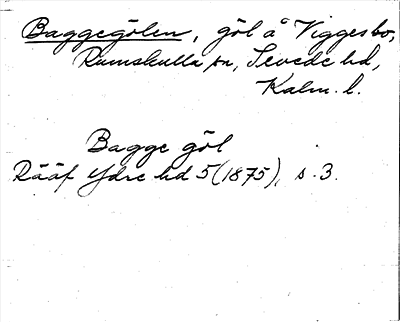 Baggegölen, göl å Viggesbo,
Rumskulla sn, Sevede hd,
Kalm. l.
Bagge göl
Rääf Ydre hd 5 (1875), s. 3.